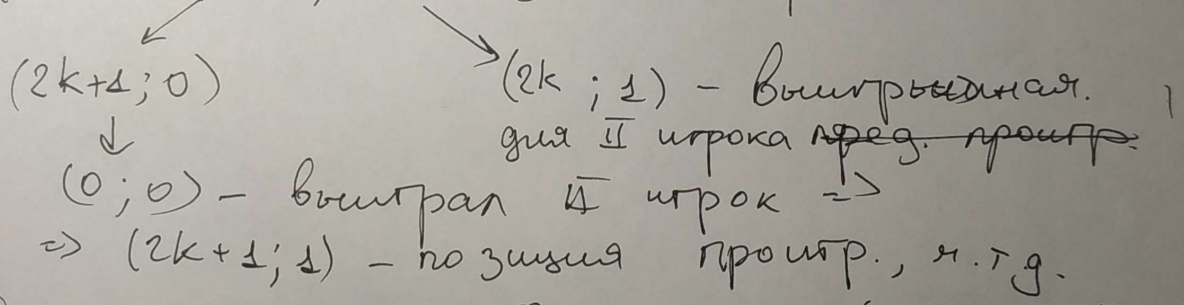 (2k+1; 0) (2k ; 1) – выигрышная.
для II игрока пред. проигр.
(0; 0) – выиграл II игрок =>
=> (2k+1; 1) – позиция проигр., ч.т.д.